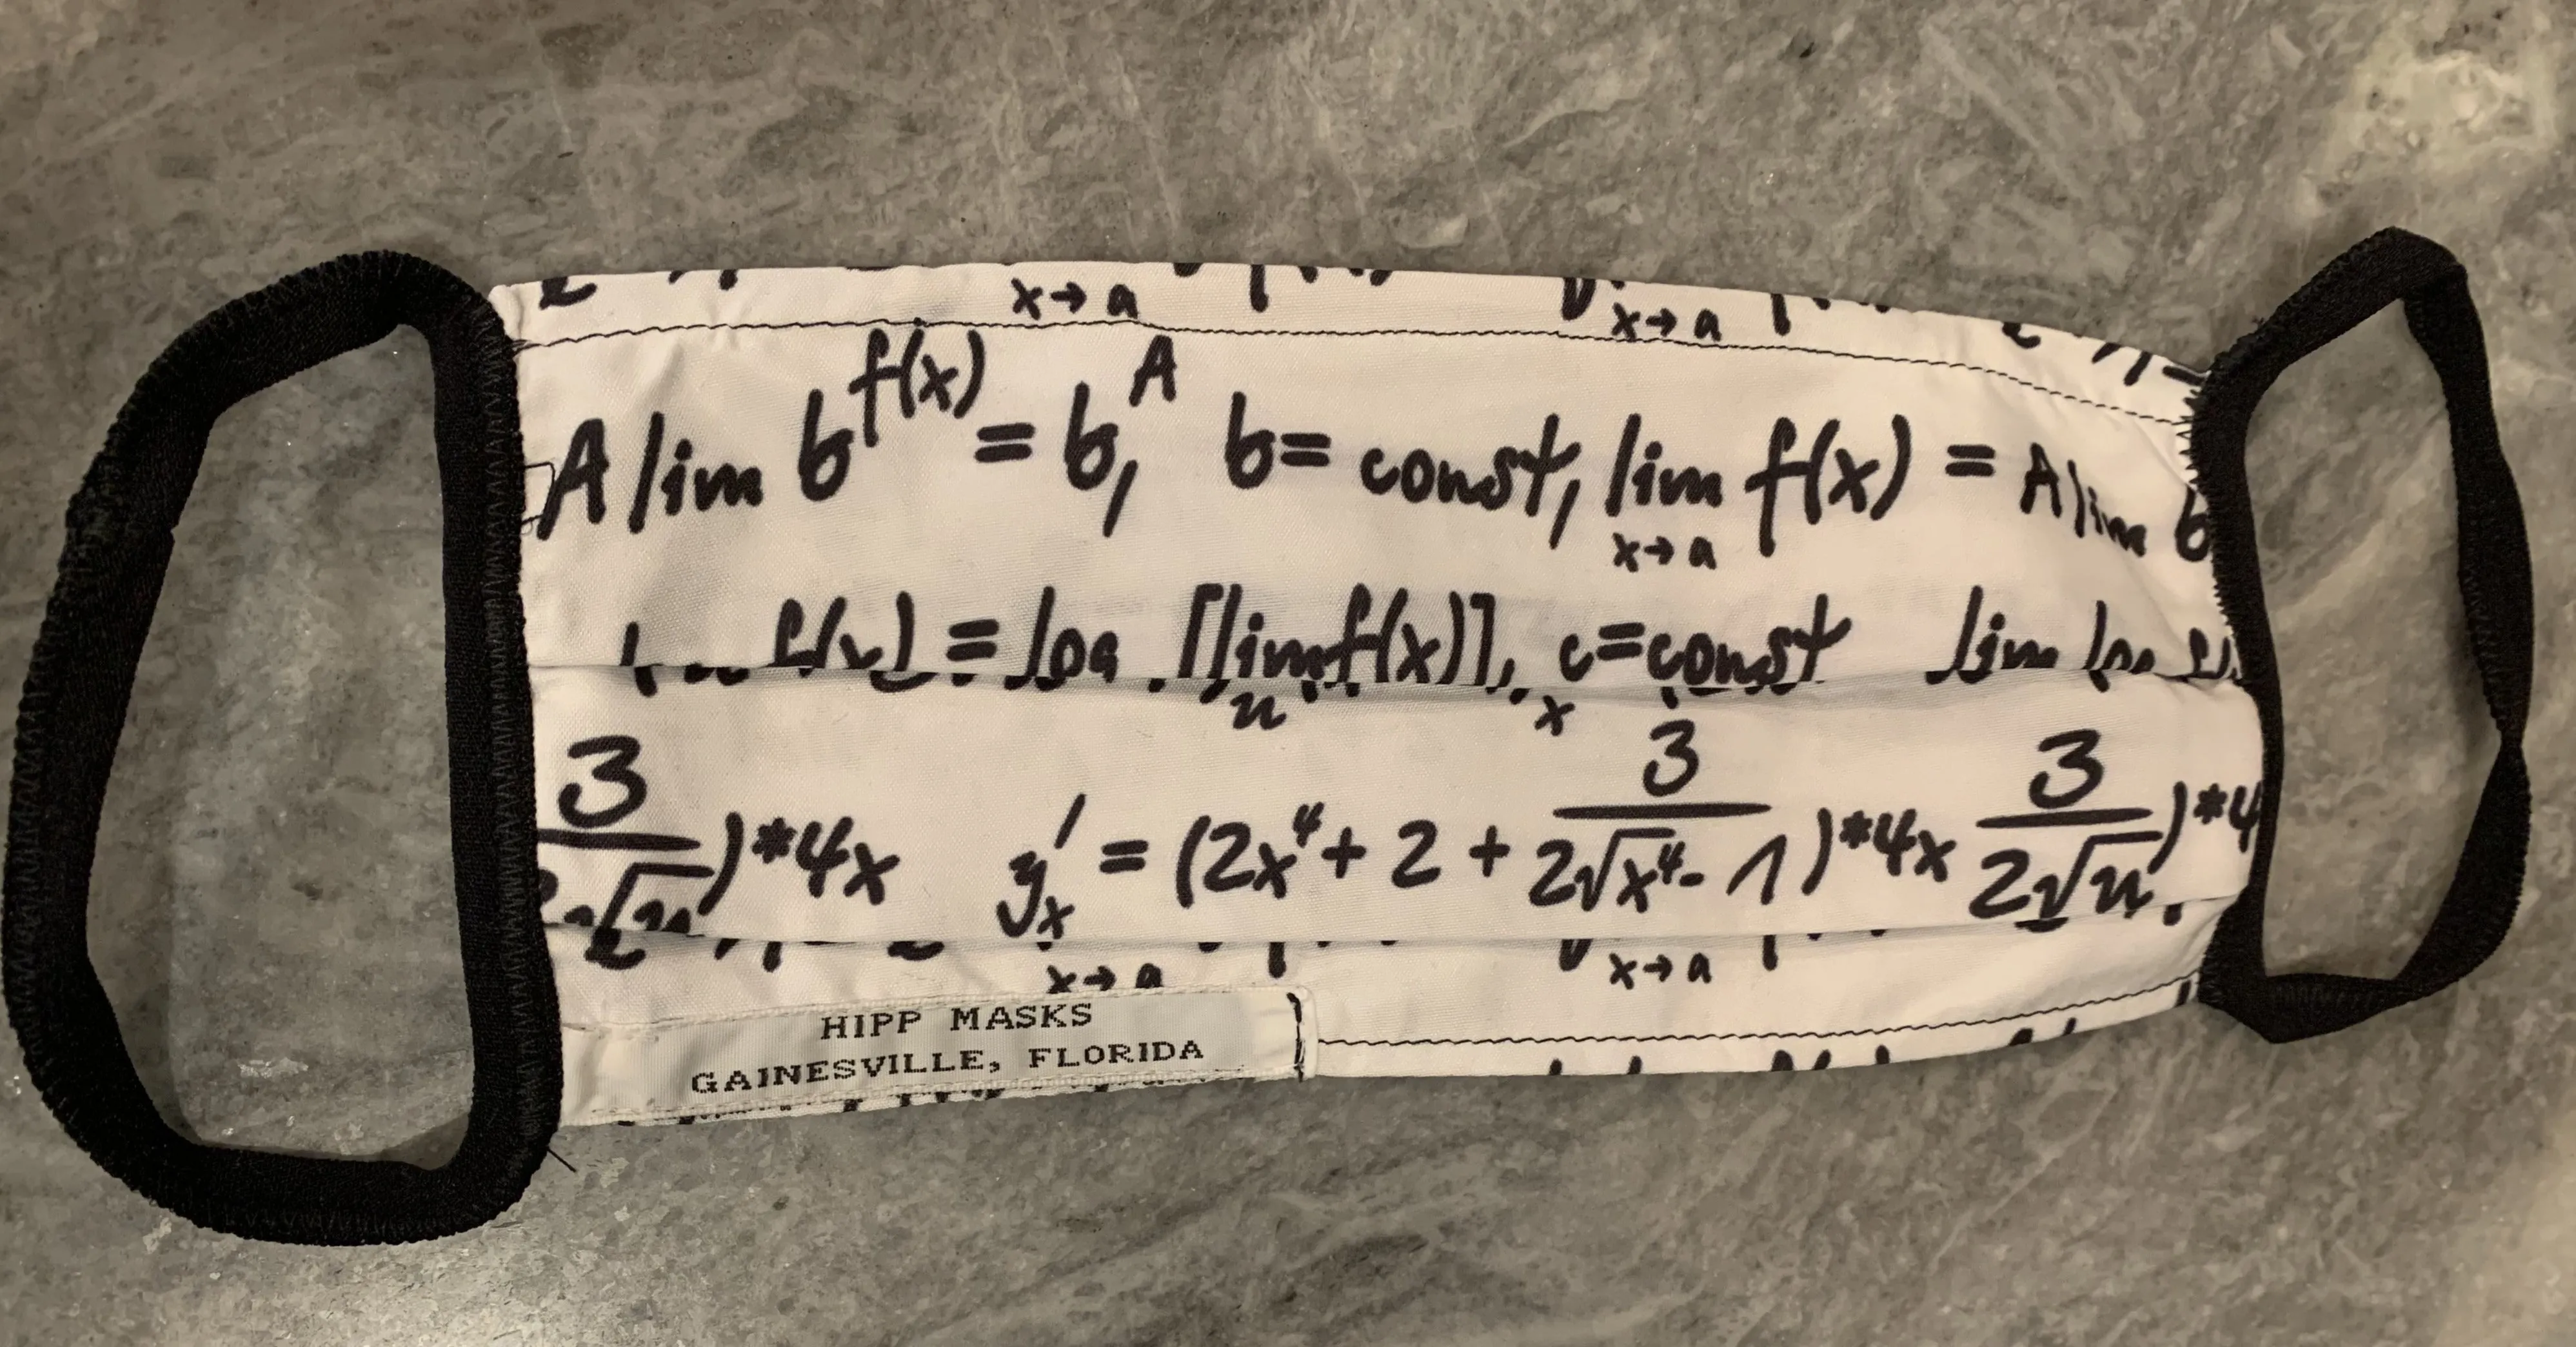 x→a x→a
A lim b^f(x) = b^A, b= const, lim f(x) = A lim b
x→a
f(x) = log [lim f(x)], c=const lim log
u x
3 3 3
)*4x y'x = (2x⁴+ 2 + 3/(2√x⁴-1) )*4x 3/(2√u) )*4
x→a x→a
HIPP MASKS
GAINESVILLE, FLORIDA